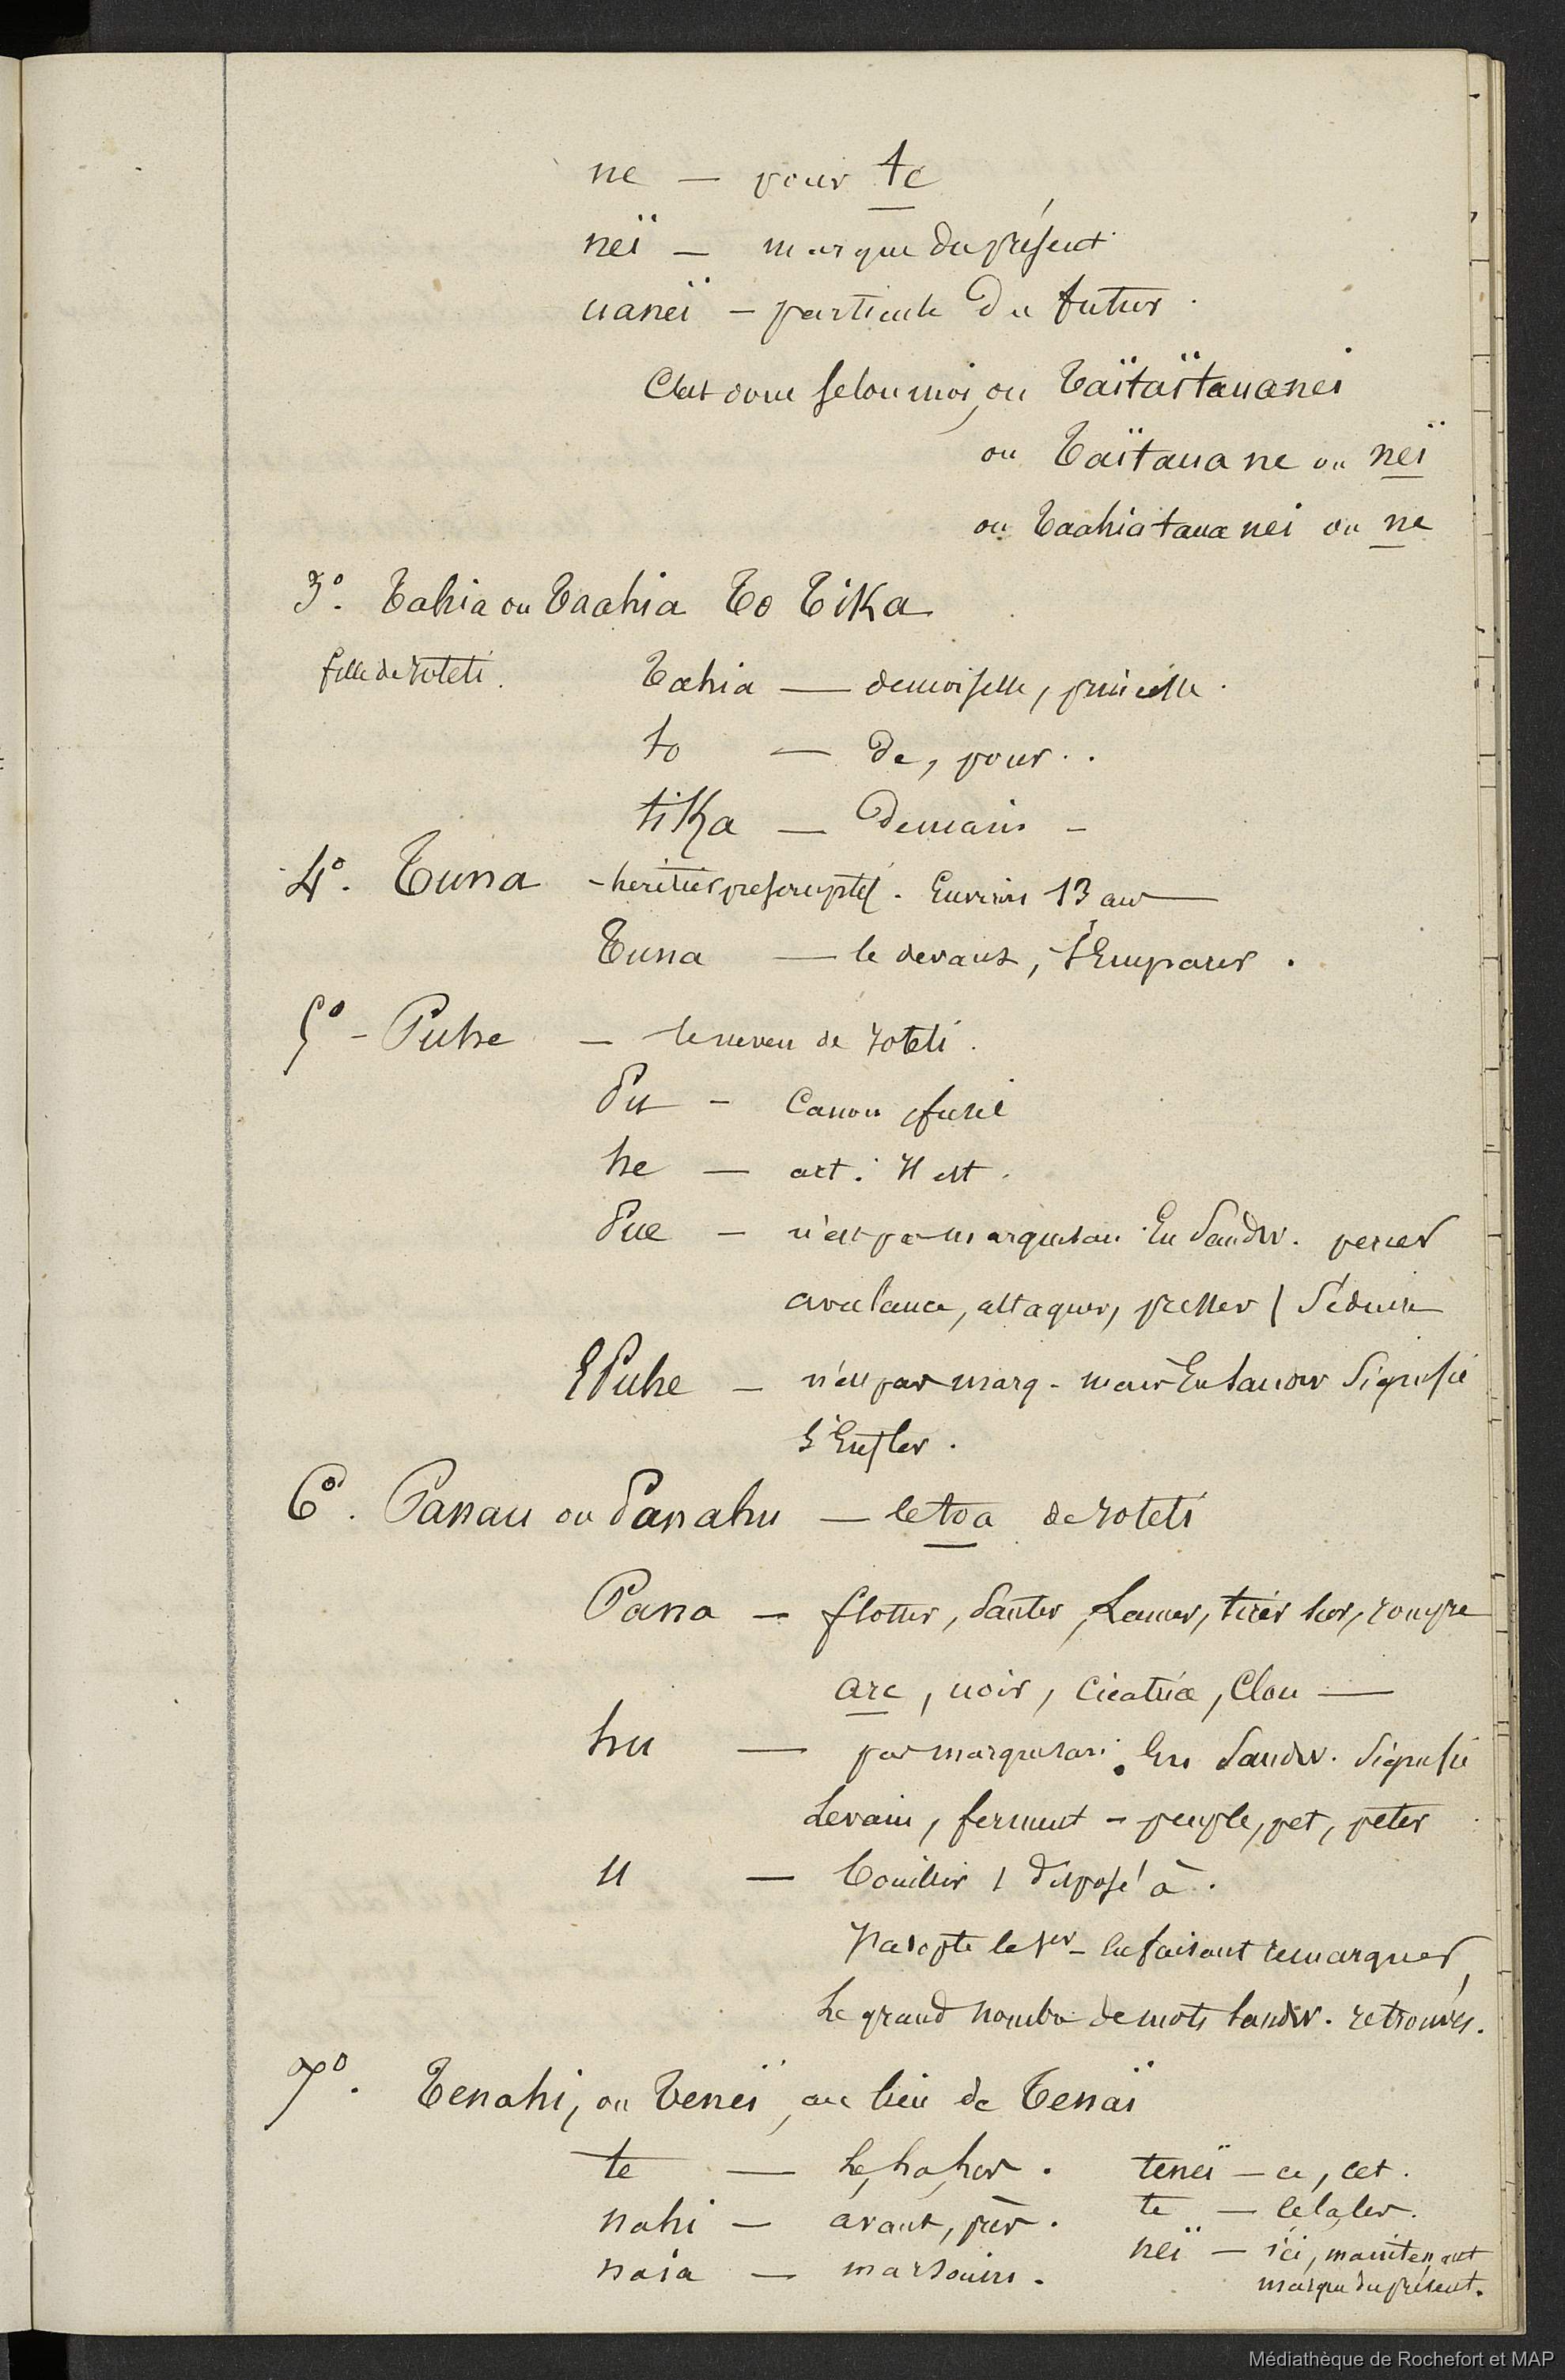 ne — pour te
neï — marque du présent
uaneï — particule du futur.
C'est donc selon moi, ou Taïtaïtauanei
ou Taïtauane ou neï
ou Taahiatauanei ou ne
3°. Tahia ou Taahia To Tika
fille de Ioteti. Tahia — demoiselle, princesse.
to — de, pour..
tika — Demain -
4°. Tuna - heritier presomptif. Environ 13 ans —
Tuna — le devant, s'Emparer.
5° - Puhe — le neveu de Ioteti.
Pu - Canon, fusil
he — art. Il est.
Pue — n'est pas marquisan. En Sandw. percer
avec lance, attaquer, presser / Séduire
EPuhe — n'est pas marq - mais En Sandw Signifie
S'Enfler.
6°. Panau ou Panahu — le toa de Ioteti
Pana — flotter, Sauter, Lancer, tirer hors, rompre
arc, noir, Cicatrice, Clou —
hu — pas marquisan. En Sandw. Signifie
Levain, ferment - peuple, pet, peter
u — bouillir / disposé à.
J'adopte le 1er - En faisant remarquer,
Le grand nombre de mots Sandw. retrouvés.
7°. Tenahi, ou Teneï, au lieu de Tenaï
te — Le, la, les. teneï — ce, cet.
nahi — avant, près. te — le la les.
naia — marsouin. neï — ici, maintenant
marque du présent.
Médiathèque de Rochefort et MAP